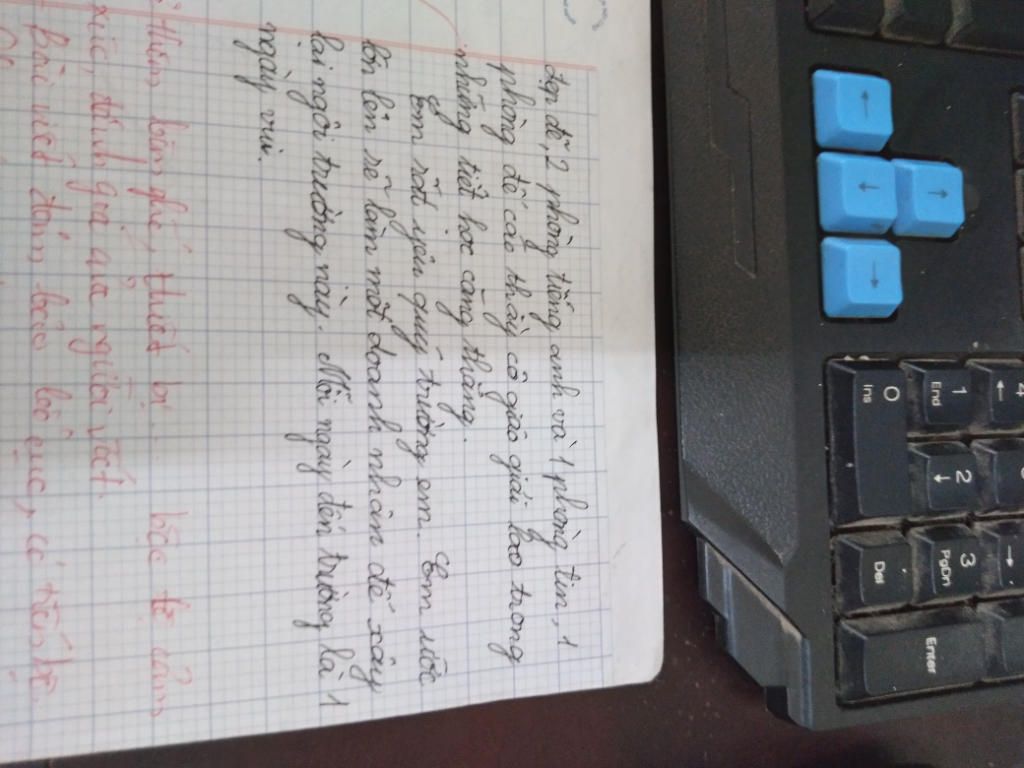 đẹp đẽ, 2 phòng tiếng anh và 1 phòng tin, 1
phòng để các thầy cô giáo giải lao trong
những tiết học căng thẳng.
Em rất yêu quý trường em. Em ước
lớn lên sẽ làm một doanh nhân để xây
lại ngôi trường này. Mỗi ngày đến trường là 1
ngày vui.
thêm bàn ghế, thiết bị... bộc lộ cảm
xúc, đánh giá của người viết.
Bài viết đảm bảo bố cục, có tiến bộ.
0
Ins
1
End
2
3
PgDn
4
Del
Enter